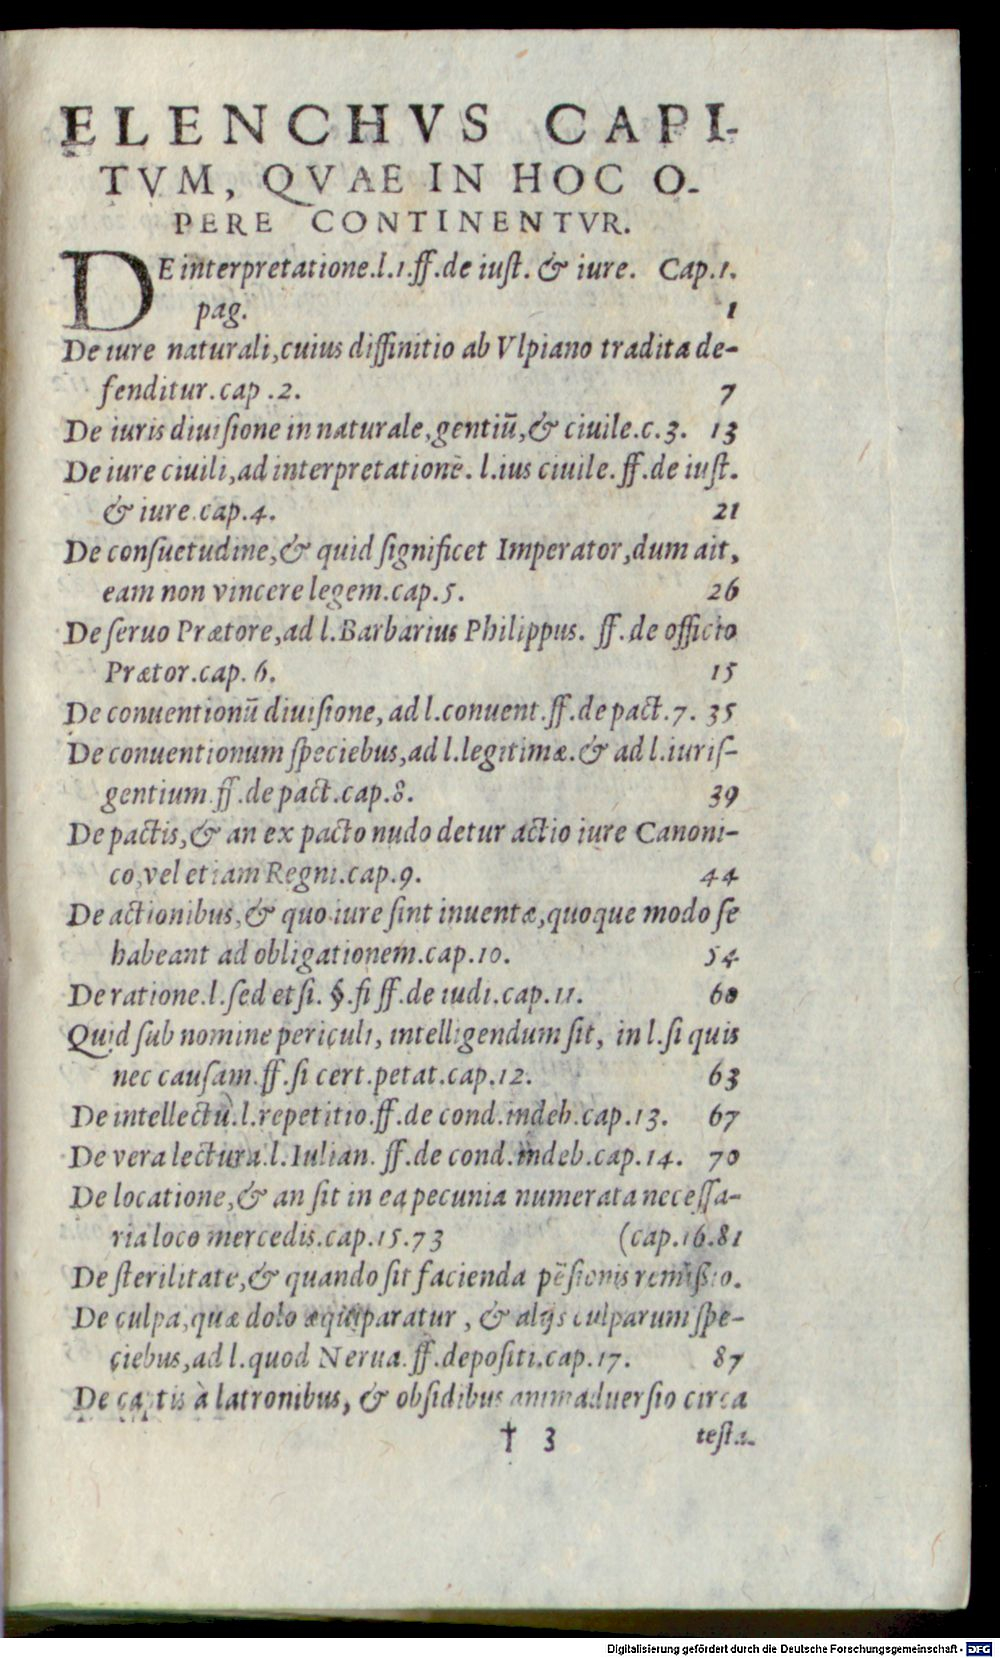 ELENCHVS CAPI-
TVM, QVAE IN HOC O-
PERE CONTINENTVR.
DE interpretatione.l.1.ff.de iust. & iure. Cap.1.
pag. 1
De iure naturali,cuius diffinitio ab Vlpiano tradita de-
fenditur.cap .2. 7
De iuris diuisione in naturale,gentiũ,& ciuile.c.3. 13
De iure ciuili,ad interpretationẽ. l.ius ciuile.ff.de iust.
& iure.cap.4. 21
De consuetudine,& quid significet Imperator,dum ait,
eam non vincere legem.cap.5. 26
De seruo Prætore,ad l.Barbarius Philippus. ff.de officio
Prætor.cap. 6. 15
De conuentionũ diuisione, ad l.conuent.ff.de pact.7. 35
De conuentionum speciebus,ad l.legitimæ.& ad l.iuris-
gentium.ff.de pact.cap.8. 39
De pactis,& an ex pacto nudo detur actio iure Canoni-
co,vel etiam Regni.cap.9. 44
De actionibus,& quo iure sint inuentæ,quoque modo se
habeant ad obligationem.cap.10. 54
De ratione.l.sed etsi. §.fi ff.de iudi.cap.11. 60
Quid sub nomine periculi, intelligendum sit, in l.si quis
nec causam.ff.si cert.petat.cap.12. 63
De intellectu.l.repetitio.ff.de cond.indeb.cap.13. 67
De vera lectura.l.Iulian. ff.de cond.indeb.cap.14. 70
De locatione,& an sit in ea pecunia numerata necessa-
ria loco mercedis.cap.15.73 (cap.16.81
De sterilitate,& quando sit facienda pẽsionis remissio.
De culpa,quæ dolo æquiparatur , & alijs culparum spe-
ciebus,ad l.quod Nerua.ff.depositi.cap.17. 87
De captis à latronibus, & obsidibus animaduersio circa
† 3 testa-
Digitalisierung gefördert durch die Deutsche Forschungsgemeinschaft - DFG